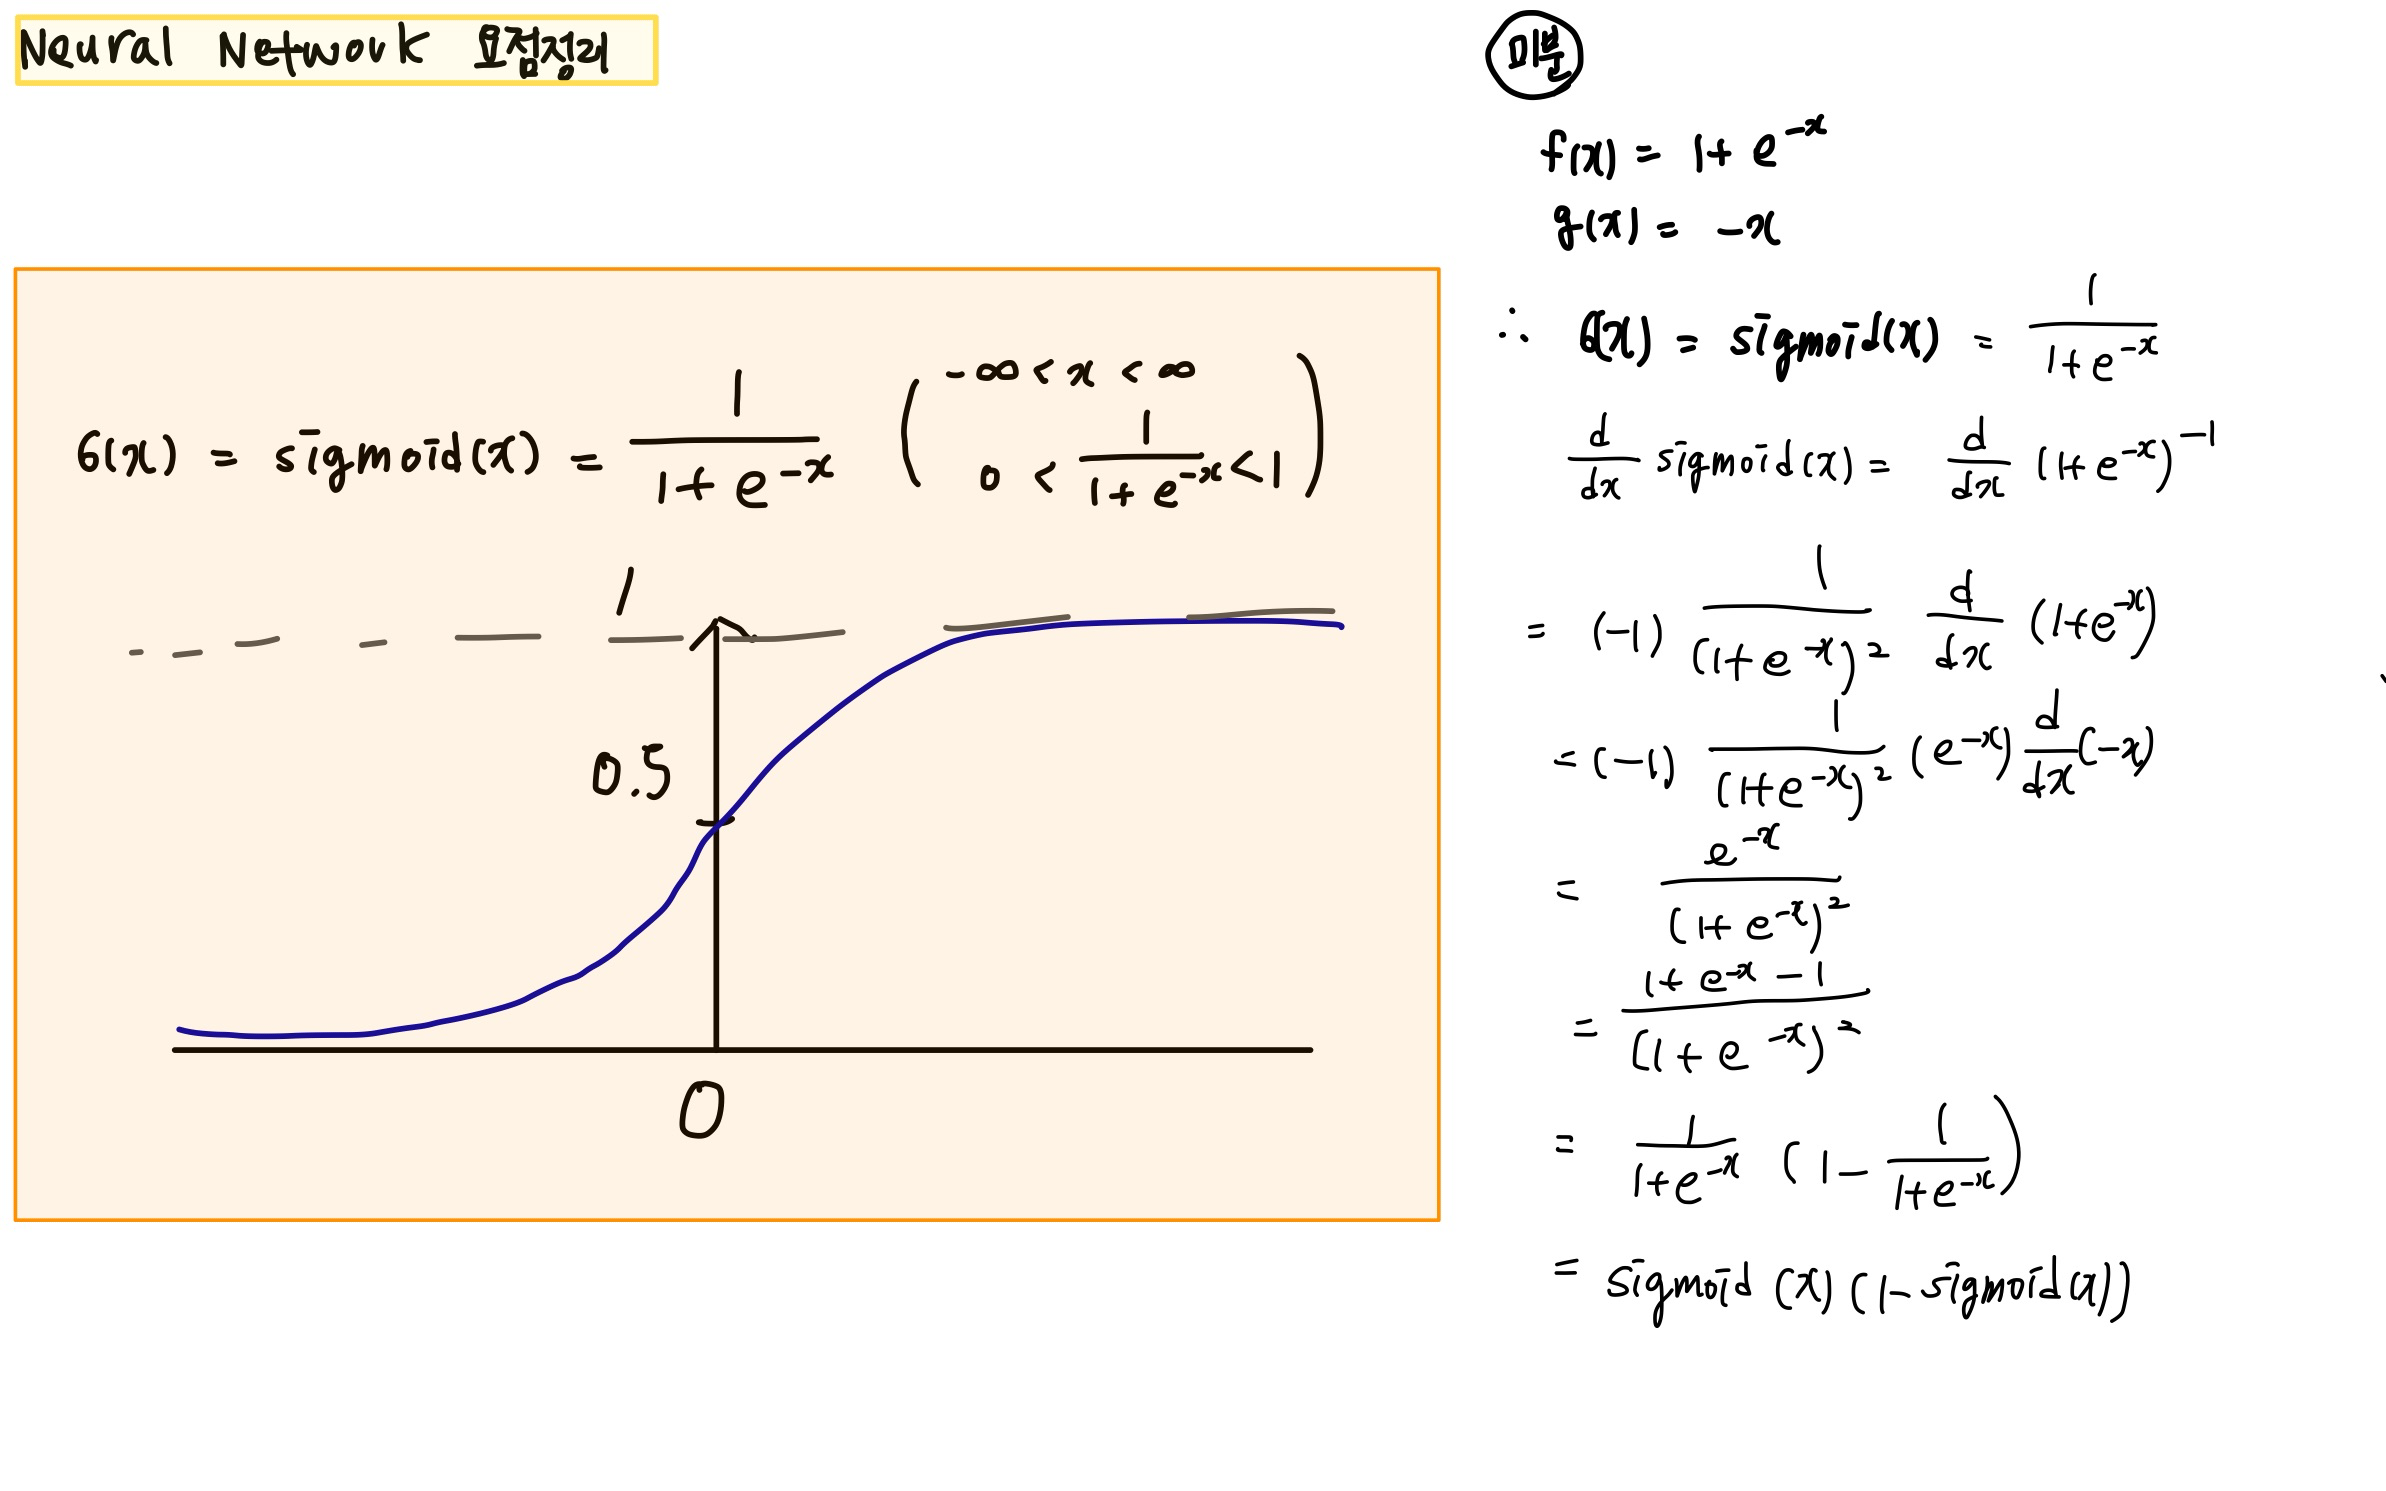 Neural Network 요점정리
6(x) = sigmoid(x) = 1 / (1 + e^-x) ( -∞ < x < ∞
0 < 1 / (1 + e^-x) < 1 )
1
0.5
0
미분
f(x) = 1 + e^-x
g(x) = -x
∴ 6(x) = sigmoid(x) = 1 / (1 + e^-x)
d/dx sigmoid(x) = d/dx (1 + e^-x)^-1
= (-1) 1 / (1 + e^-x)^2 d/dx (1 + e^-x)
= (-1) 1 / (1 + e^-x)^2 (e^-x) d/dx (-x)
= e^-x / (1 + e^-x)^2
= (1 + e^-x - 1) / (1 + e^-x)^2
= 1 / (1 + e^-x) (1 - 1 / (1 + e^-x))
= sigmoid(x) (1 - sigmoid(x))